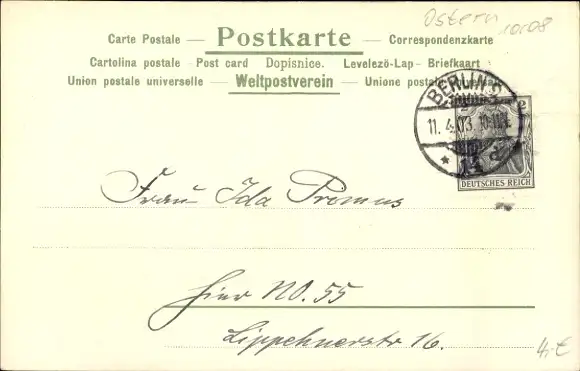 Ostern
10.08
Carte Postale — Postkarte — Correspondenzkarte
Cartolina postale - Post card Dopisnice. Levelezö-Lap - Briefkaart
Union postale universelle — Weltpostverein — Unione postale universale
BERLIN
11.4.03. 10-11V.
2 2
DEUTSCHES REICH
Frau Ida Primus
Hier NO. 55
Lippehnerstr 16.
4,-€